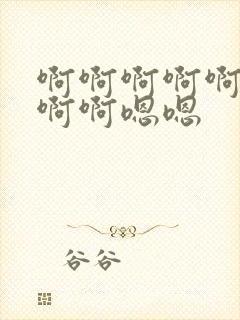 啊啊啊啊啊
啊啊嗯嗯
谷谷